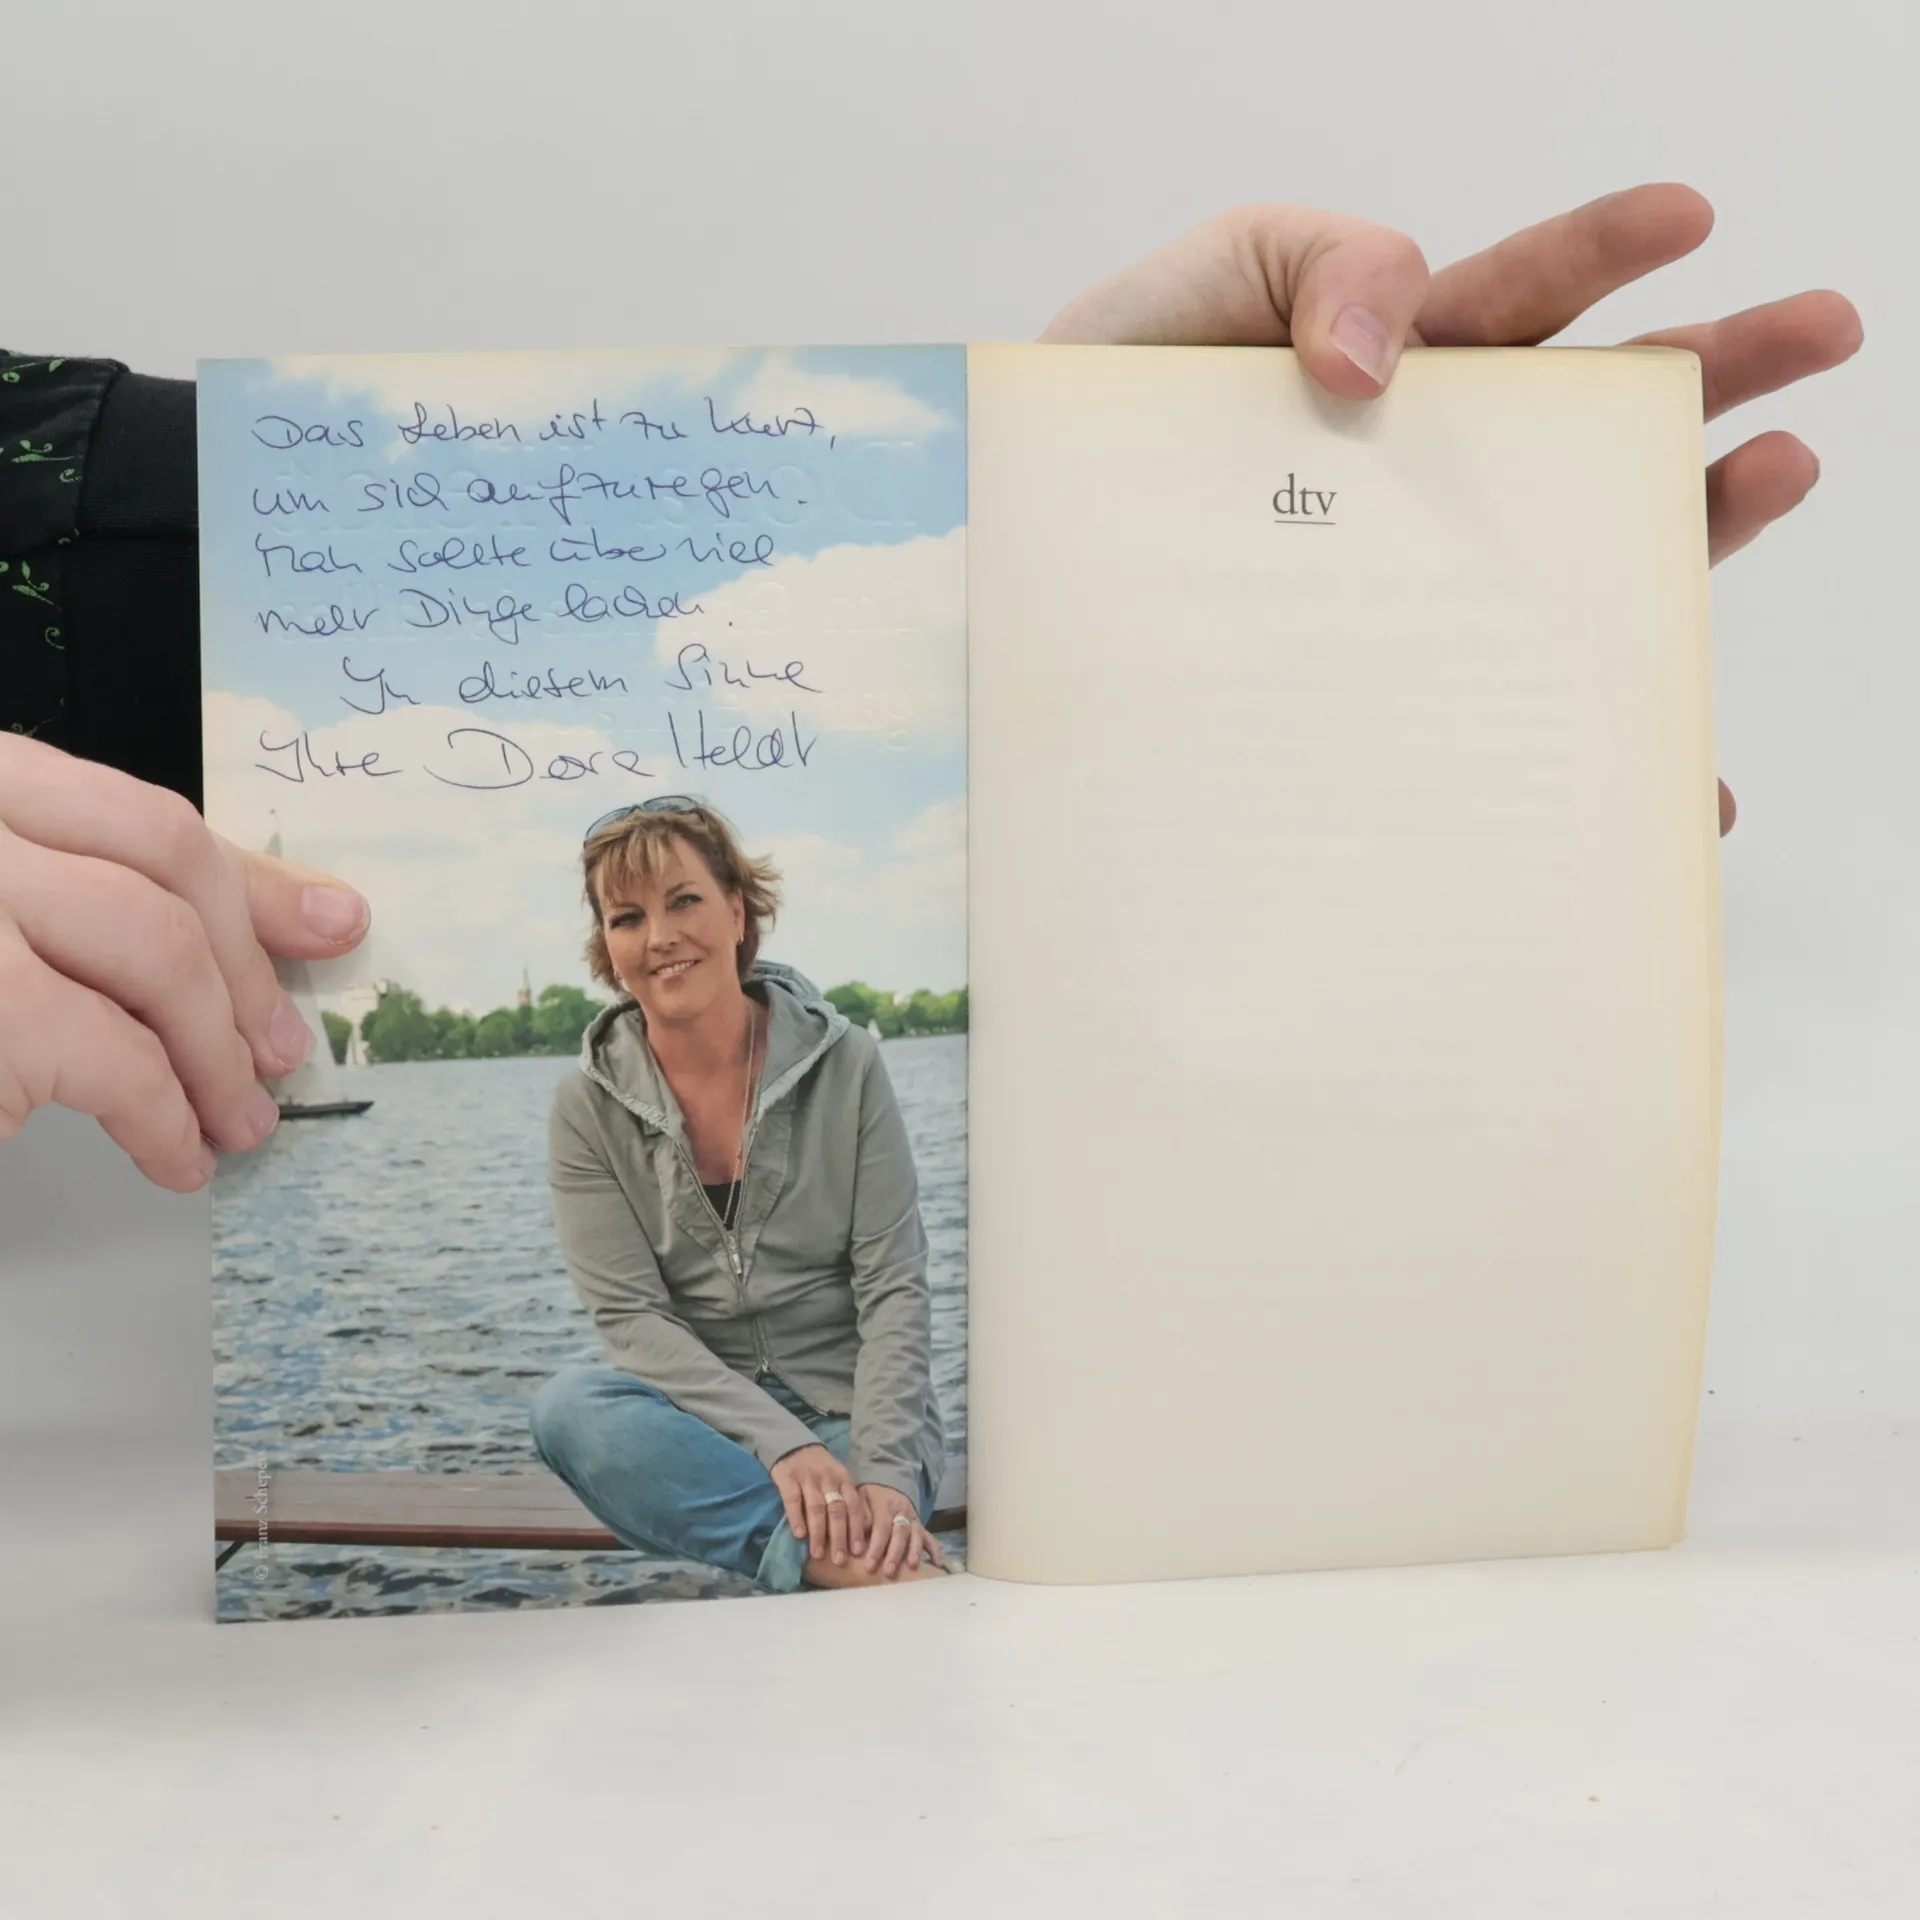 Das Leben ist zu kurz,
um sich aufzuregen.
Man sollte über viel
mehr Dinge lachen.
In diesem Sinne
Ihre Dora Heldt
© Franz Schepers
dtv